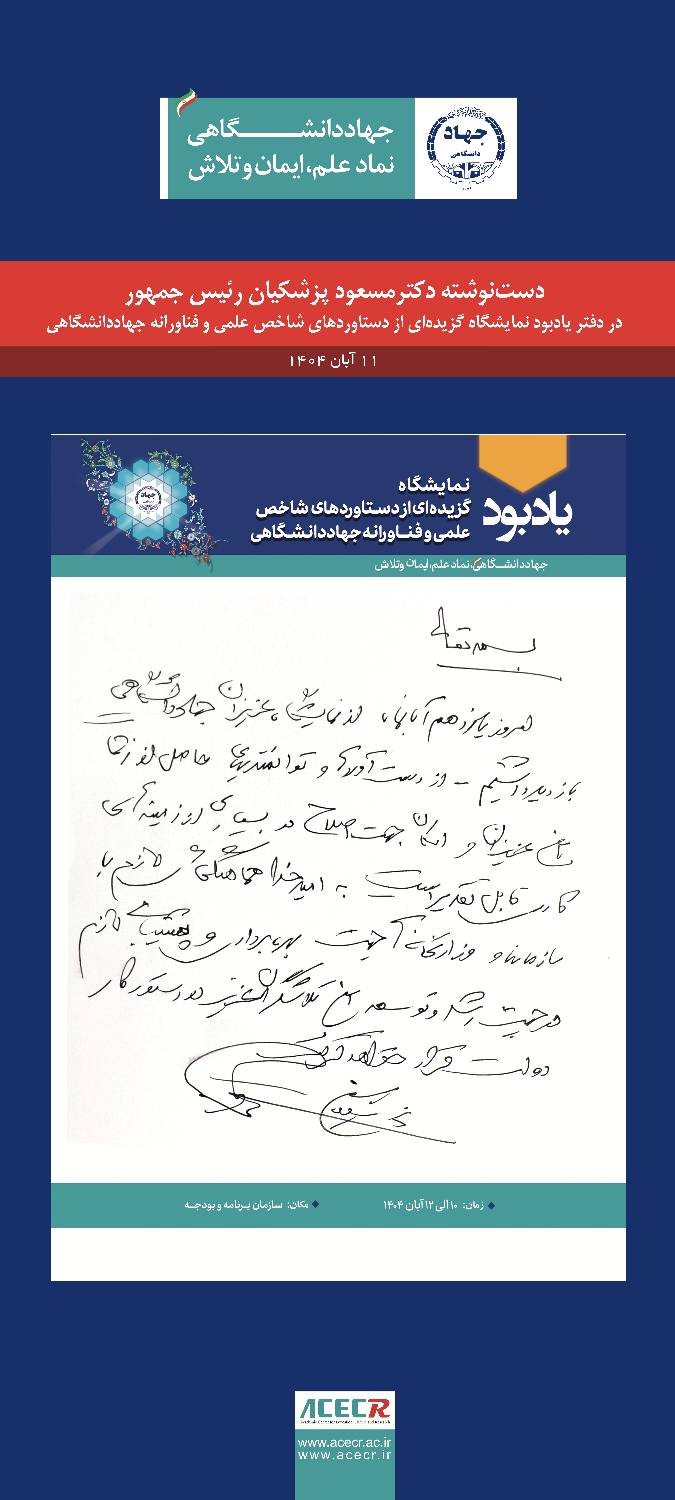 جهاددانشگاهی
نماد علم، ایمان و تلاش
جهاد
دانشگاهی
دست‌نوشته دکتر مسعود پزشکیان رئیس جمهور
در دفتر یادبود نمایشگاه گزیده‌ای از دستاوردهای شاخص علمی و فناورانه جهاددانشگاهی
۱۱ آبان ۱۴۰۴
یادبود
نمایشگاه
گزیده‌ای از دستاوردهای شاخص
علمی و فناورانه جهاددانشگاهی
جهاد
جهاددانشگاهی، نماد علم، ایمان و تلاش
بسمه تعالی
امروز یازدهم آبانماه از نمایشگاه عزیزان جهاد دانشگاهی
بازدید داشتیم - از دست آوردها و توانمندیهای حاصل از زحمات
این عزیزان و امکان جهت اصلاح در بسیاری از زمینه های
کاری قابل تقدیر است به امید خدا هماهنگی لازم با
سازمانها و وزارتخانه ها جهت بهره برداری و پشتیبانی لازم
در جهت رشد و توسعه این تلاشگران عزیز در دستور کار
دولت قرار خواهد گرفت
زمان: ۱۰ الی ۱۲ آبان ۱۴۰۴
مکان: سازمان برنامه و بودجه
ACECR
www.acecr.ac.ir
www.acecr.ir